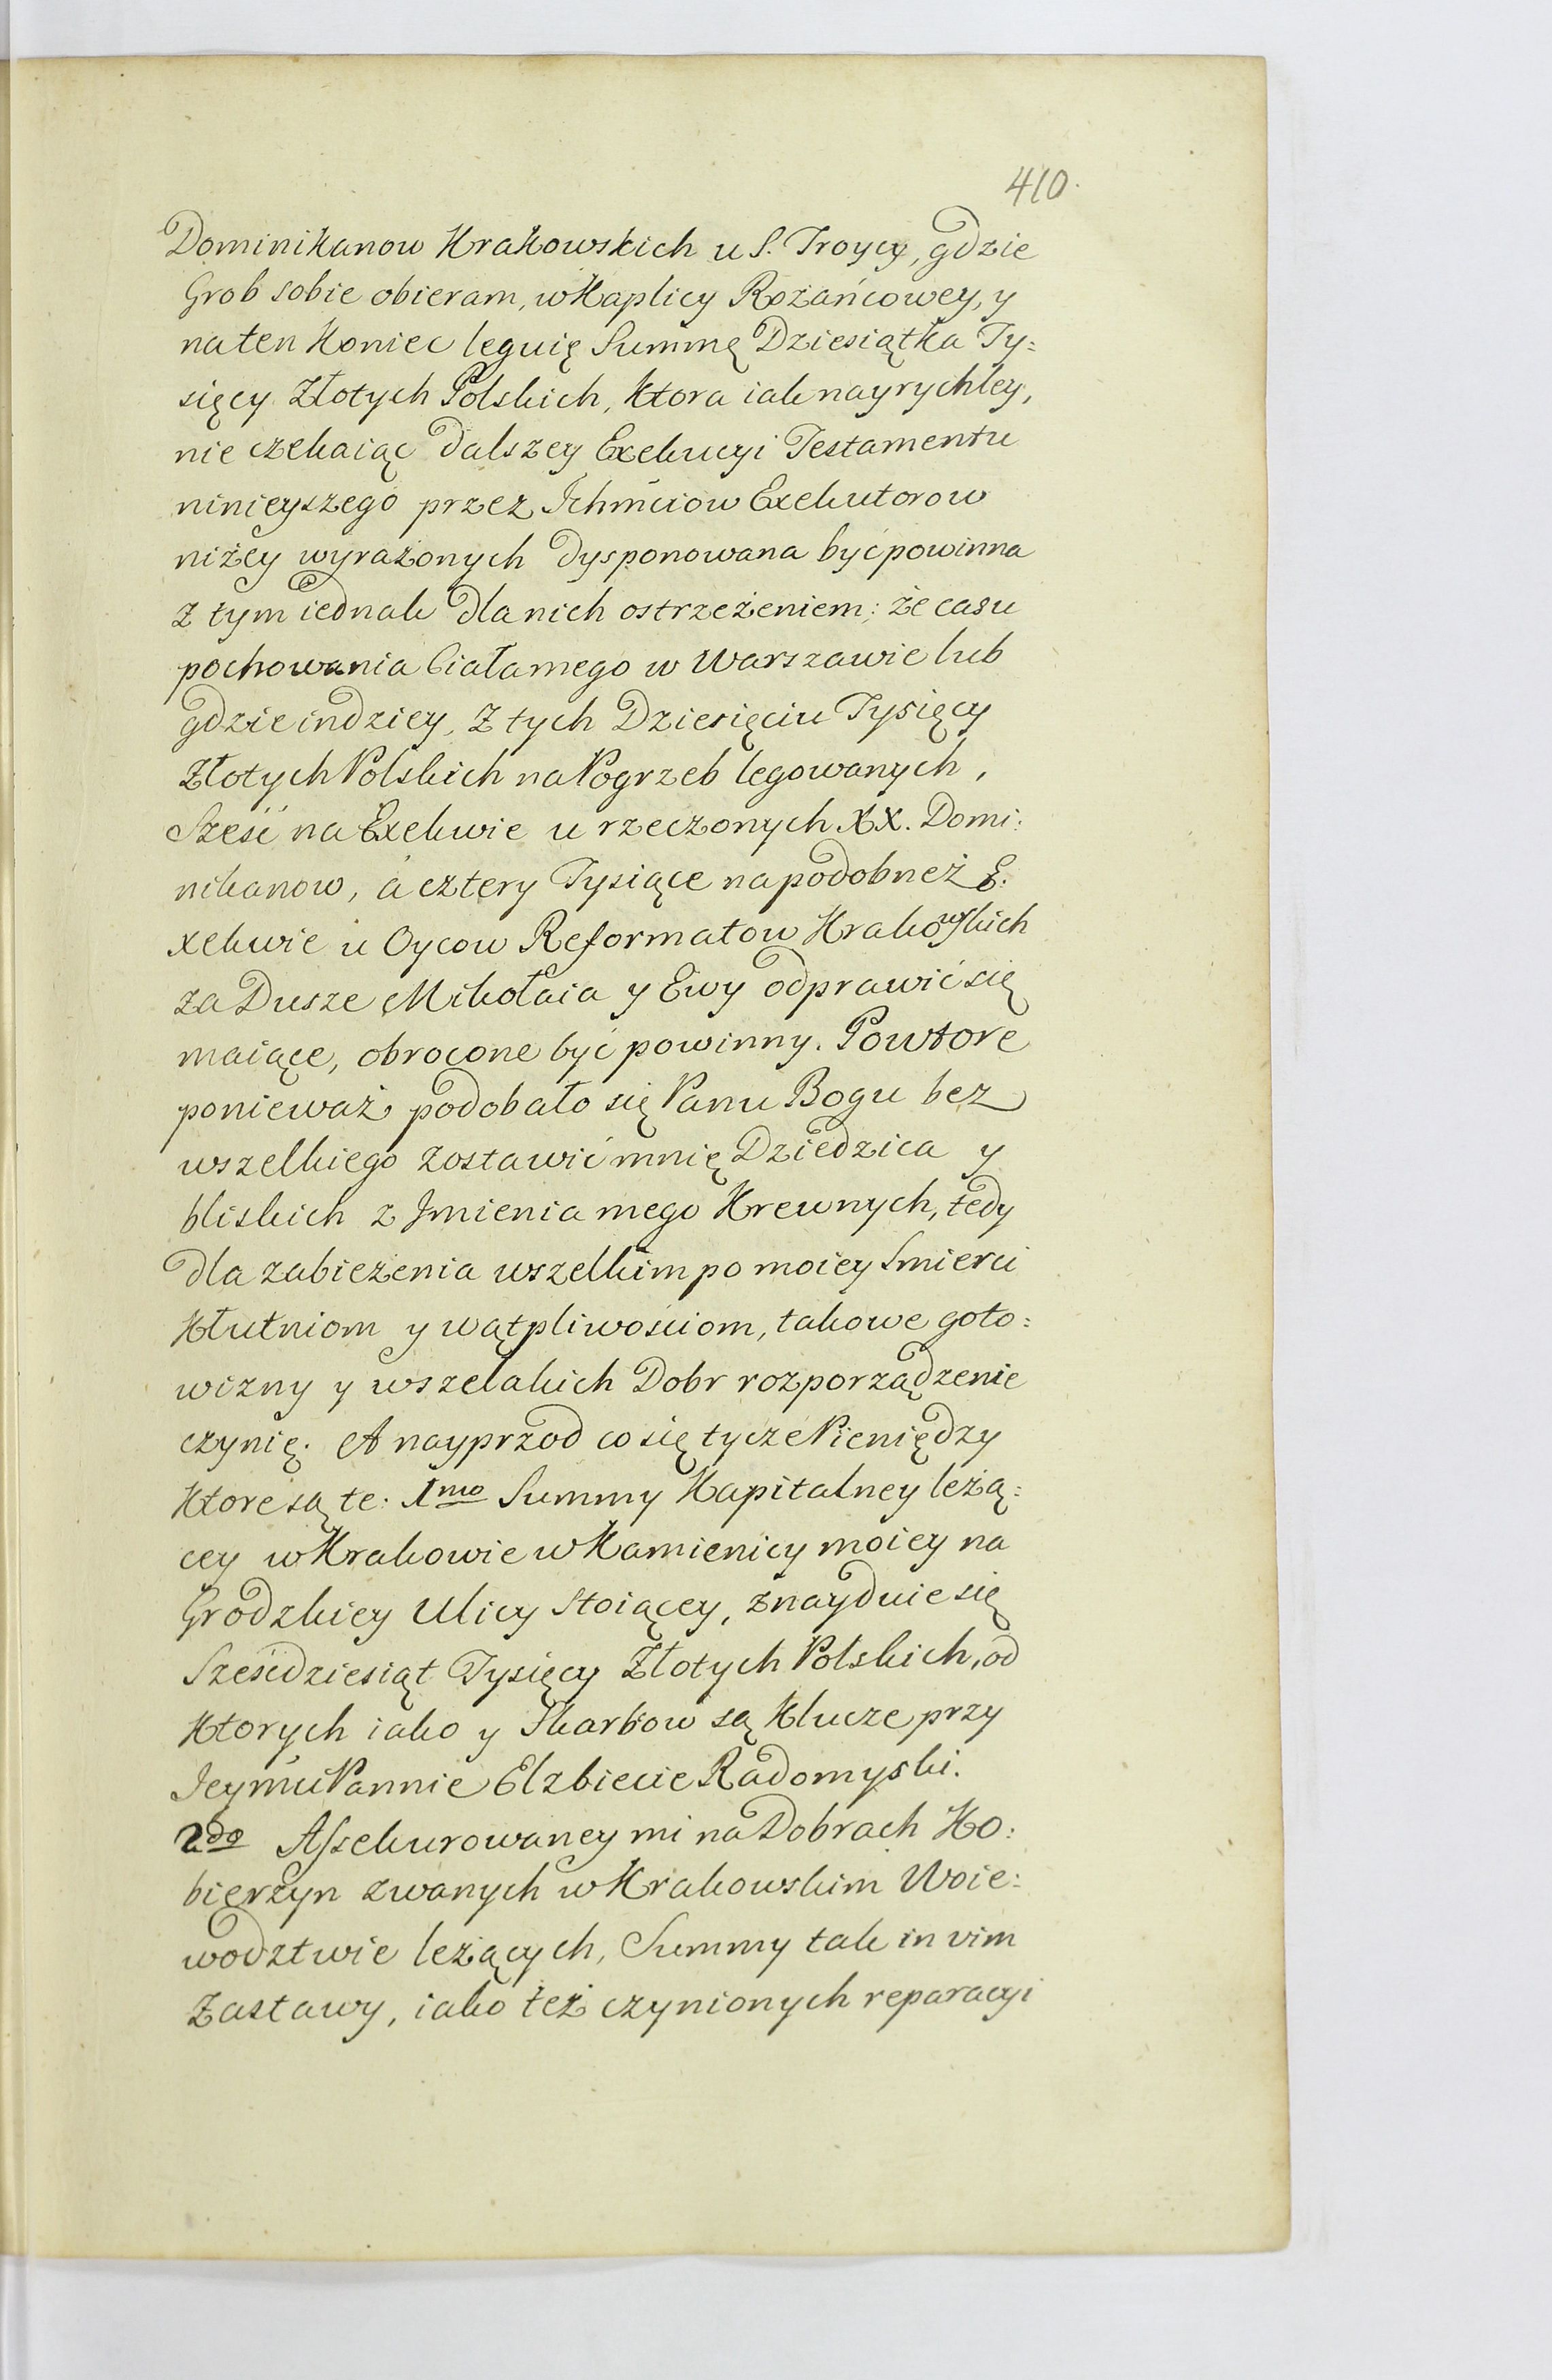 410.
Dominikanow Krakowskich u S. Troycy, gdzie
Grob sobie obieram, w Kaplicy Rożańcowey, y
na ten Koniec leguię Summę Dziesiątka Ty=
sięcy Złotych Polskich, Ktora iak nayrychley,
nie czekaiąc dalszey Exekucyi Testamentu
ninieyszego przez Ichmciow Exekutorow
niżey wyrażonych dysponowana być powinna
z tym iednak dla nich ostrzeżeniem: że casu
pochowania Ciała mego w Warszawie lub
gdzie indziey, z tych Dziesięciu Tysięcy
Złotych Polskich na Pogrzeb legowanych,
Sześć na Exekwie u rzeczonych XX. Domi:
nikanow, á cztery Tysiące na podobneż E:
xekwie u Oycow Reformatow Krakowskich
za Dusze Mikołaia y Ewy odprawić się
maiące, obrocone być powinny. Powtore
ponieważ podobało się Panu Bogu bez
wszelkiego zostawić mnię Dziedzica y
bliskich z Jmienia mego Krewnych, tedy
dla zabieżenia wszelkim po moiey Smierci
Kłutniom y wątpliwościom, takowe goto:
wizny y wszelakich Dobr rozporządzenie
czynię. A nayprzod co się tycze Pieniędzy
Ktore są te: 1mo Summy Kapitalney leżą:
cey w Krakowie w Kamienicy moiey na
Grodzkiey Ulicy stoiącey, znayduie się
Sześćdziesiąt Tysięcy Złotych Polskich, od
Ktorych iako y Skarbow są Klucze przy
Jeymci Pannie Elzbiecie Radomyski.
2do Assekurowaney mi na Dobrach Ko:
bierzyn zwanych w Krakowskim Woie:
wodztwie leżących, Summy tak in vim
Zastawy, iako też czynionych reparacyi